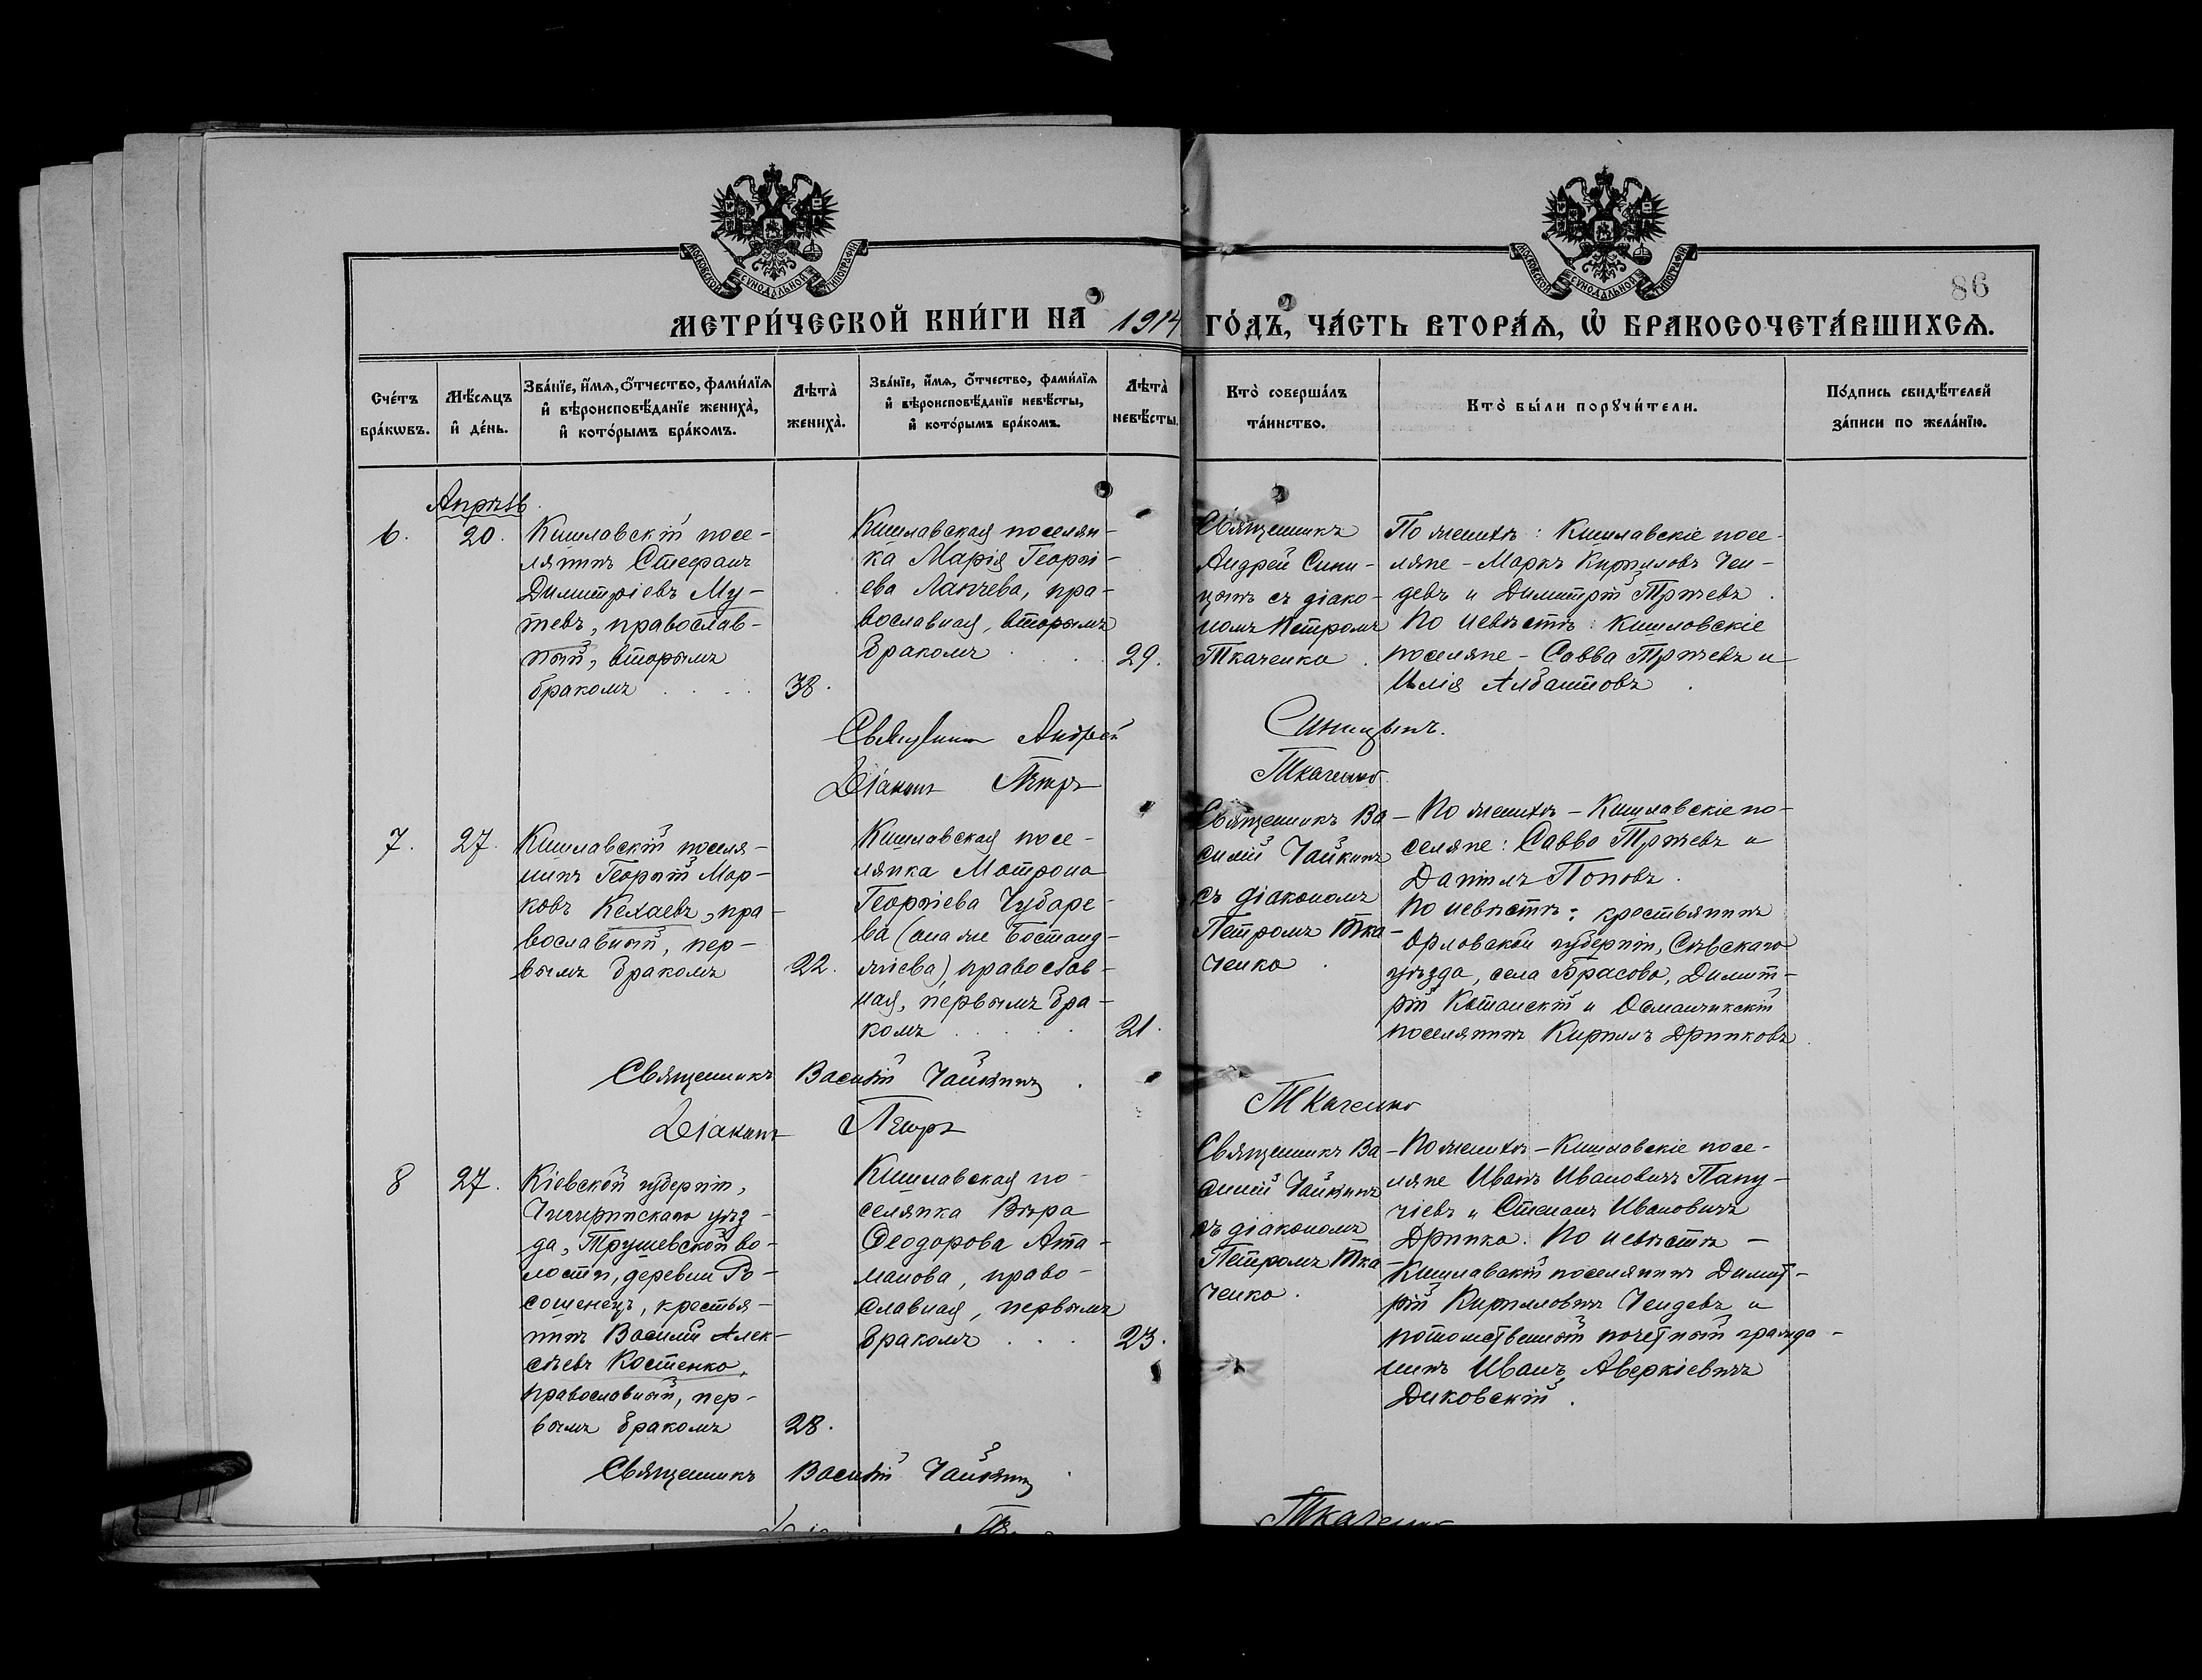 МОСКОВСКОЙ СѴНОДАЛЬНОЙ ТИПОГРАФІИ
МОСКОВСКОЙ СѴНОДАЛЬНОЙ ТИПОГРАФІИ
86
МЕТРИ́ЧЕСКОЙ КНИ́ГИ НА 1914 ГО́ДЪ, ЧА́СТЬ ВТОРА́Ѧ, Ѽ БРАКОСОЧЕТА́ВШИХСѦ.
Сче́тъ
бра́кѡвъ.
Мѣ́сѧцъ
и҆ де́нь.
Зва́нїе, и҆́мѧ, ѻ҆́тчество, фами́лїѧ
и҆ вѣроисповѣ́данїе жениха̀,
и҆ кото́рымъ бра́комъ.
Лѣта̀
жениха̀.
Зва́нїе, и҆́мѧ, ѻ҆́тчество, фами́лїѧ
и҆ вѣроисповѣ́данїе невѣ́сты,
и҆ кото́рымъ бра́комъ.
Лѣта̀
невѣ́сты.
Кто̀ соверша́лъ
та́инство.
Кто̀ бы́ли порꙋчи́тели.
По́дпись свидѣ́телей
за́писи по жела́нїю.
Апрѣль
6.
20.
Кишлавскій посе-
лянинъ Стефанъ
Димитріевъ Му-
тевъ, православ-
ный, вторымъ
бракомъ
38.
Кишлавская поселян-
ка Марія Георгі-
ева Лапчева, пра-
вославная, вторымъ
бракомъ
29.
Священникъ
Андрей Сини-
цынъ съ діако-
номъ Петромъ
Ткаченко.
По женихѣ: Кишлавскіе посе-
ляне - Маркъ Кирилловъ Чен-
девъ и Димитрій Тричевъ.
По невѣстѣ: Кишловскіе
поселяне - Савва Тричевъ и
Илія Албантовъ.
Священникъ Андрей Синицынъ.
Діаконъ Петръ Ткаченко.
7.
27.
Кишлавскій поселя-
нинъ Георгій Мар-
ковъ Келаевъ, пра-
вославный, пер-
вымъ бракомъ
22.
Кишлавская посе-
лянка Матрона
Георгіева Чубаре-
ва (она же Бостанд-
жіева), православ-
ная, первымъ бра-
комъ
21.
Священникъ Ва-
силій Чайкинъ
съ діакономъ
Петромъ Тка-
ченко.
По женихѣ - Кишлавскіе по-
селяне: Савва Тричевъ и
Даніилъ Поповъ.
По невѣстѣ: крестьянинъ
Орловской губерніи, Сѣвскаго
уѣзда, села Брасово, Димит-
рій Костанскій и Османчикскій
поселянинъ Кириллъ Дринковъ.
Священникъ Василій Чайкинъ.
Діаконъ Петръ Ткаченко
8
27.
Кіевской губерніи,
Чигиринскаго уѣз-
да, Трушевской во-
лости, деревни Ро-
сошенецъ, крестья-
нинъ Василій Алек-
сѣевъ Костенко,
православный, пер-
вымъ бракомъ
28.
Кишлавская по-
селянка Вѣра
Ѳеодорова Ата-
манова, право-
славная, первымъ
бракомъ
23.
Священникъ Ва-
силій Чайкинъ
съ діакономъ
Петромъ Тка-
ченко.
По женихѣ - Кишлавскіе посе-
ляне Иванъ Ивановичъ Папу-
чіевъ и Степанъ Ивановичъ
Дринка. По невѣстѣ -
Кишлавскій поселянинъ Димит-
рій Кирилловичъ Чендевъ и
потомственный почетный гражда-
нинъ Иванъ Аверкіевичъ
Диковскій.
Священникъ Василій Чайкинъ.
Ткаченко